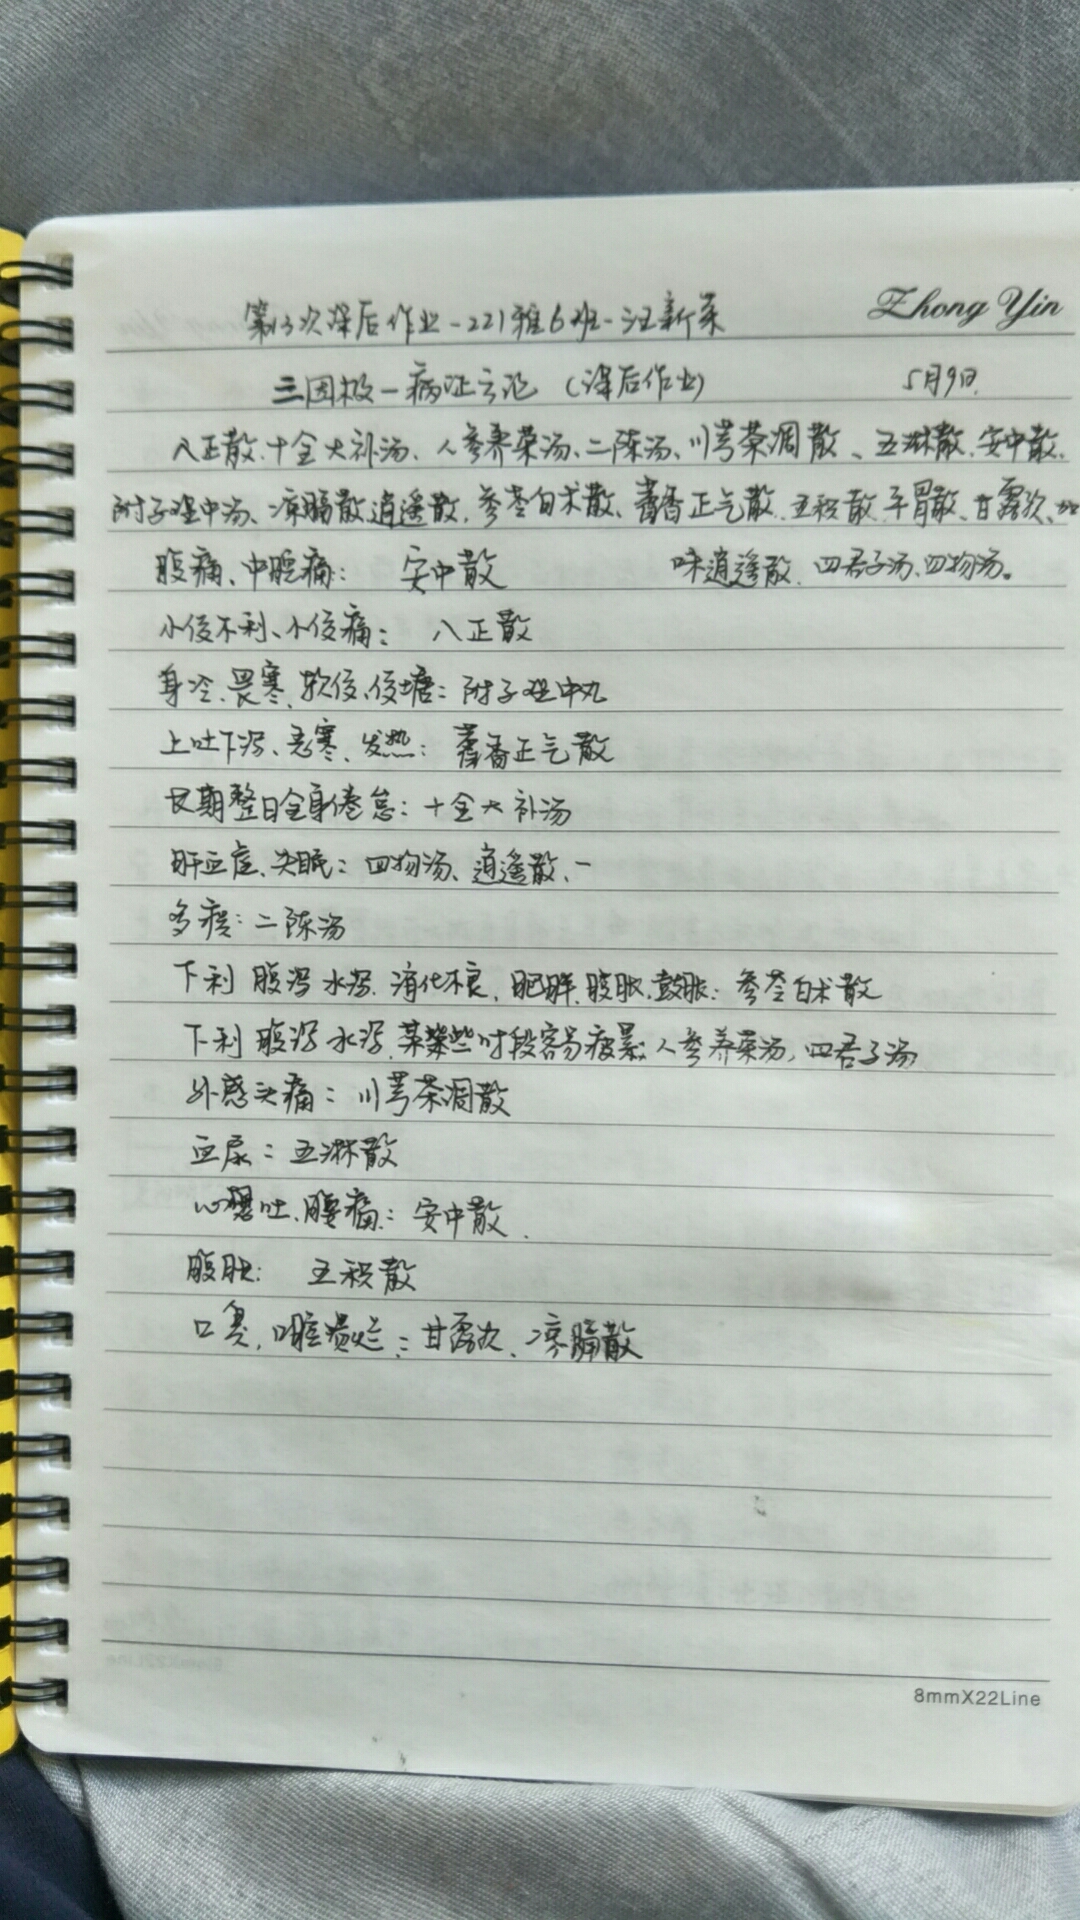 Zhong Yin
第13次课后作业-221雅6班-汪新
三因极一病证方论（课后作业） 5月9日.
八正散、十全大补汤、人参养荣汤、二陈汤、川芎茶调散、五淋散、安中散、
附子理中汤、凉膈散、逍遥散、参苓白术散、藿香正气散、五积散、平胃散、甘露饮、加
味逍遥散、四君子汤、四物汤。
腹痛、中腔痛： 安中散
小便不利、小便痛： 八正散
身冷、畏寒、软便、便溏：附子理中丸
上吐下泻、恶寒、发热：藿香正气散
长期整日全身倦怠：十全大补汤
肝血虚、失眠：四物汤、逍遥散、一
多痰：二陈汤
下利 腹泻 水泻、消化不良、肥胖、腹胀、鼓胀：参苓白术散
下利 腹泻 水泻、某些时段容易疲累：人参养荣汤，四君子汤
外感头痛：川芎茶调散
血尿：五淋散
心想吐、腰痛：安中散.
腹胀： 五积散
口臭，口腔溃烂：甘露饮、凉膈散
8mmX22Line